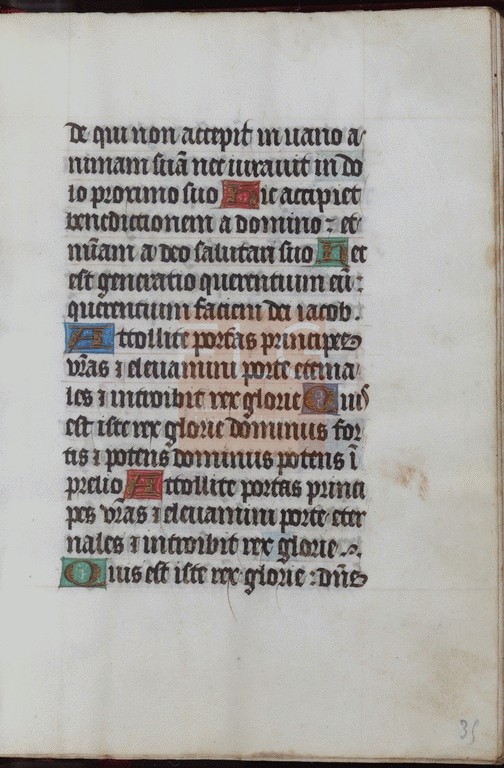 de qui non accepit in uano a
nimam suã nec iurauit in do
lo proximo suo Hic accipiet
benedictionem a domino : et
mĩam a deo salutari suo Hec
est generatio querentium eũ :
querentium faciem dei iacob .
Attollite portas principes
vr̃as ⁊ eleuamini porte eterna
les ⁊ introibit rex glorie Quis
est iste rex glorie dominus for
tis ⁊ potens dominus potens ĩ
prelio Attollite portas princi
pes vr̃as ⁊ eleuamini porte eter
nales ⁊ introibit rex glorie .
Quis est iste rex glorie : dñs
35